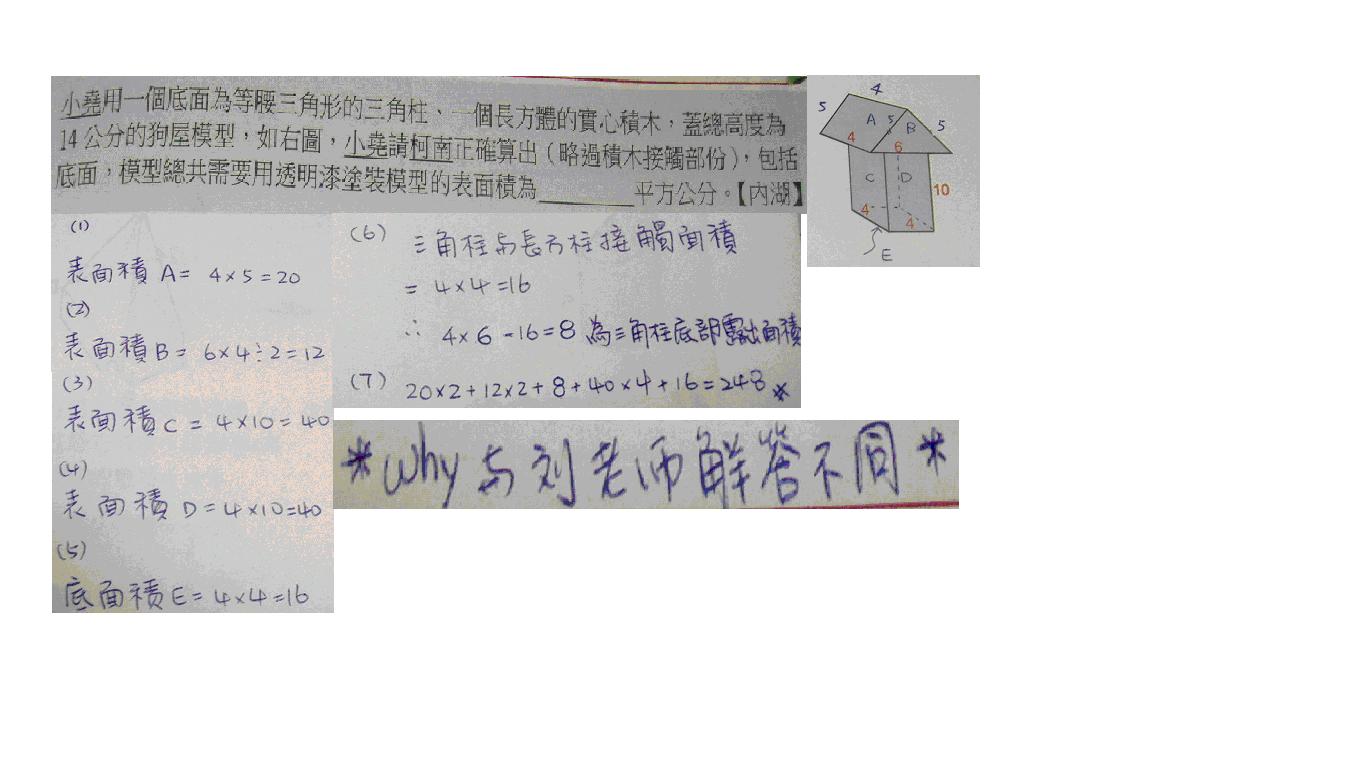 小堯用一個底面為等腰三角形的三角柱、一個長方體的實心積木，蓋總高度為
14公分的狗屋模型，如右圖，小堯請柯南正確算出（略過積木接觸部份），包括
底面，模型總共需要用透明漆塗裝模型的表面積為________平方公分。【內湖】
4
5
A
5
B
5
4
6
C
D
10
4
4
E
(1)
表面積 A= 4×5=20
(2)
表面積 B= 6×4÷2=12
(3)
表面積 C = 4×10=40
(4)
表面積 D=4×10=40
(5)
底面積 E=4×4=16
(6) 三角柱与長方柱接觸面積
= 4×4=16
∴ 4×6-16=8 為三角柱底部露出面積
(7) 20×2+12×2+8+40×4+16=248 *
*Why 与刘老师解答不同*